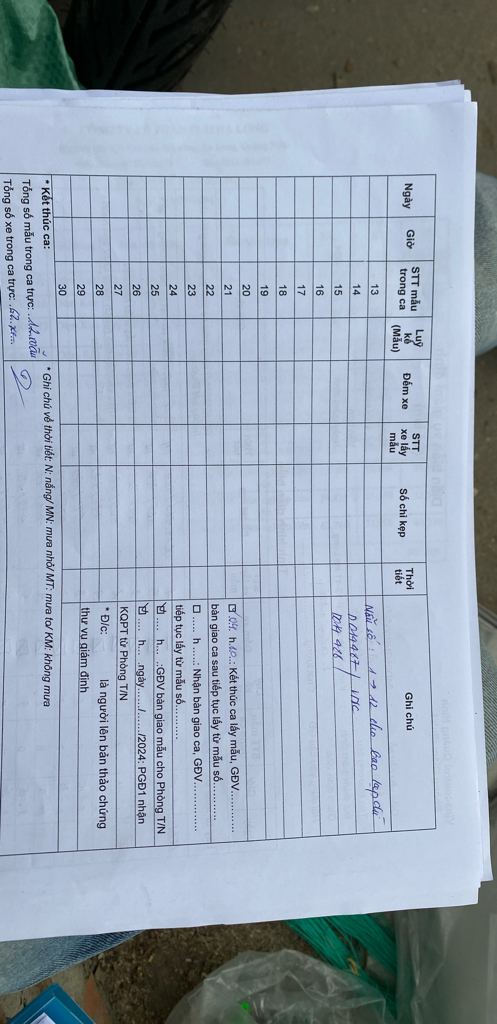 Ngày Giờ STT mẫu trong ca Luỹ kế (Mẫu) Đếm xe STT xe lấy mẫu Số chỉ kẹp Thời tiết Ghi chú
13
14
15
16
17
18
19
20
21
22
23
24
25
26
27
28
29
30
Mẫu số: 1 → 12
☑ 04. h 10.: Kết thúc ca lấy mẫu, GĐV............
bàn giao ca sau tiếp tục lấy từ mẫu số............
☐ ...... h ......: Nhận bàn giao ca, GĐV...............
tiếp tục lấy từ mẫu số..........
☑ ...... h.... .:GĐV bàn giao mẫu cho Phòng T/N
☑ ...... h.... .ngày....../....../2024: PGĐ1 nhận
KQPT từ Phòng T/N
* Đ/c: là người lên bản thảo chứng
thư vụ giám định
* Kết thúc ca: * Ghi chú về thời tiết: N: nắng/ MN: mưa nhỏ/ MT: mưa to/ KM: không mưa
Tổng số mẫu trong ca trực: .12.mẫu
Tổng số xe trong ca trực: .62.xe...